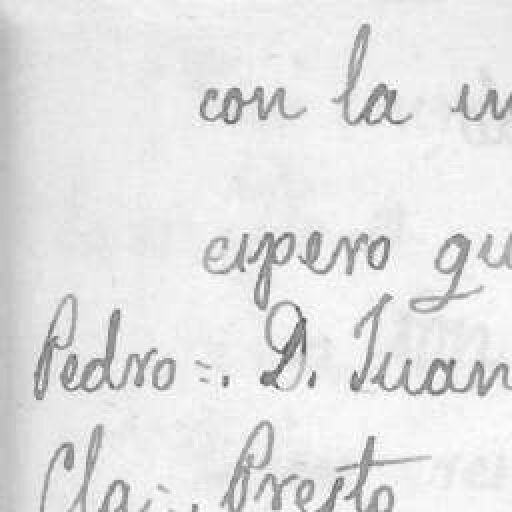 con la
espero
Pedro=. D. Juan
Cla=. Presto